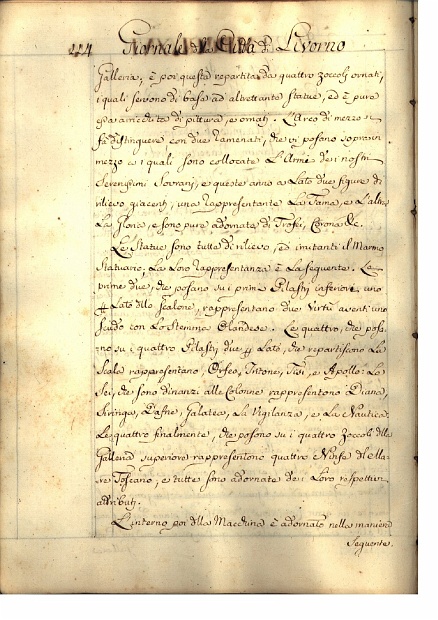 224 Giornale della Città di Livorno
Galleria, è poi questa repartita da quattro zoccoli ornati,
i quali servono di base ad altrettante statue, ed è pure
arricchita di pittura, e ornati. L'Arco di mezzo si
fà distinguere con due che vi posano sopra in
mezzo a i quali sono collocate L'Arme dei nostri
Serenissimi Sovrani, e queste anno a Lato due figure di
rilievo giacenti, una rappresentante La Fama, e L'altra
La Gloria, e sono pure adornate di Trofei, Corone &c.
Le Statue sono tutte di rilievo, ed imitanti il Marmo
Statuario; La Loro rappresentanza è La seguente. Le
prime due, che posano su i primi Pilastri inferiori uno
Lato dello scalone, rappresentano due Virtù aventi uno
scudo con Lo stemma Olandese. Le quattro, che posa-
no su i quattro Pilastri due Lato, che repartiscono La
Scala rappresentano, Orfeo, Apollo: Le
Sei, che sono dinanzi alle Colonne rappresentono Diana,
Siringa, Dafne, Galatea, La Vigilanza, e La Nautica.
Le quattro finalmente, che posono su i quattro zoccoli della
Galleria superiore rappresentono quattro Ninfe del Ma-
re Toscano, e tutte sono adornate dei Loro respettivi
attributi.
L'interno poi della Macchina è adornato nella maniera
seguente.